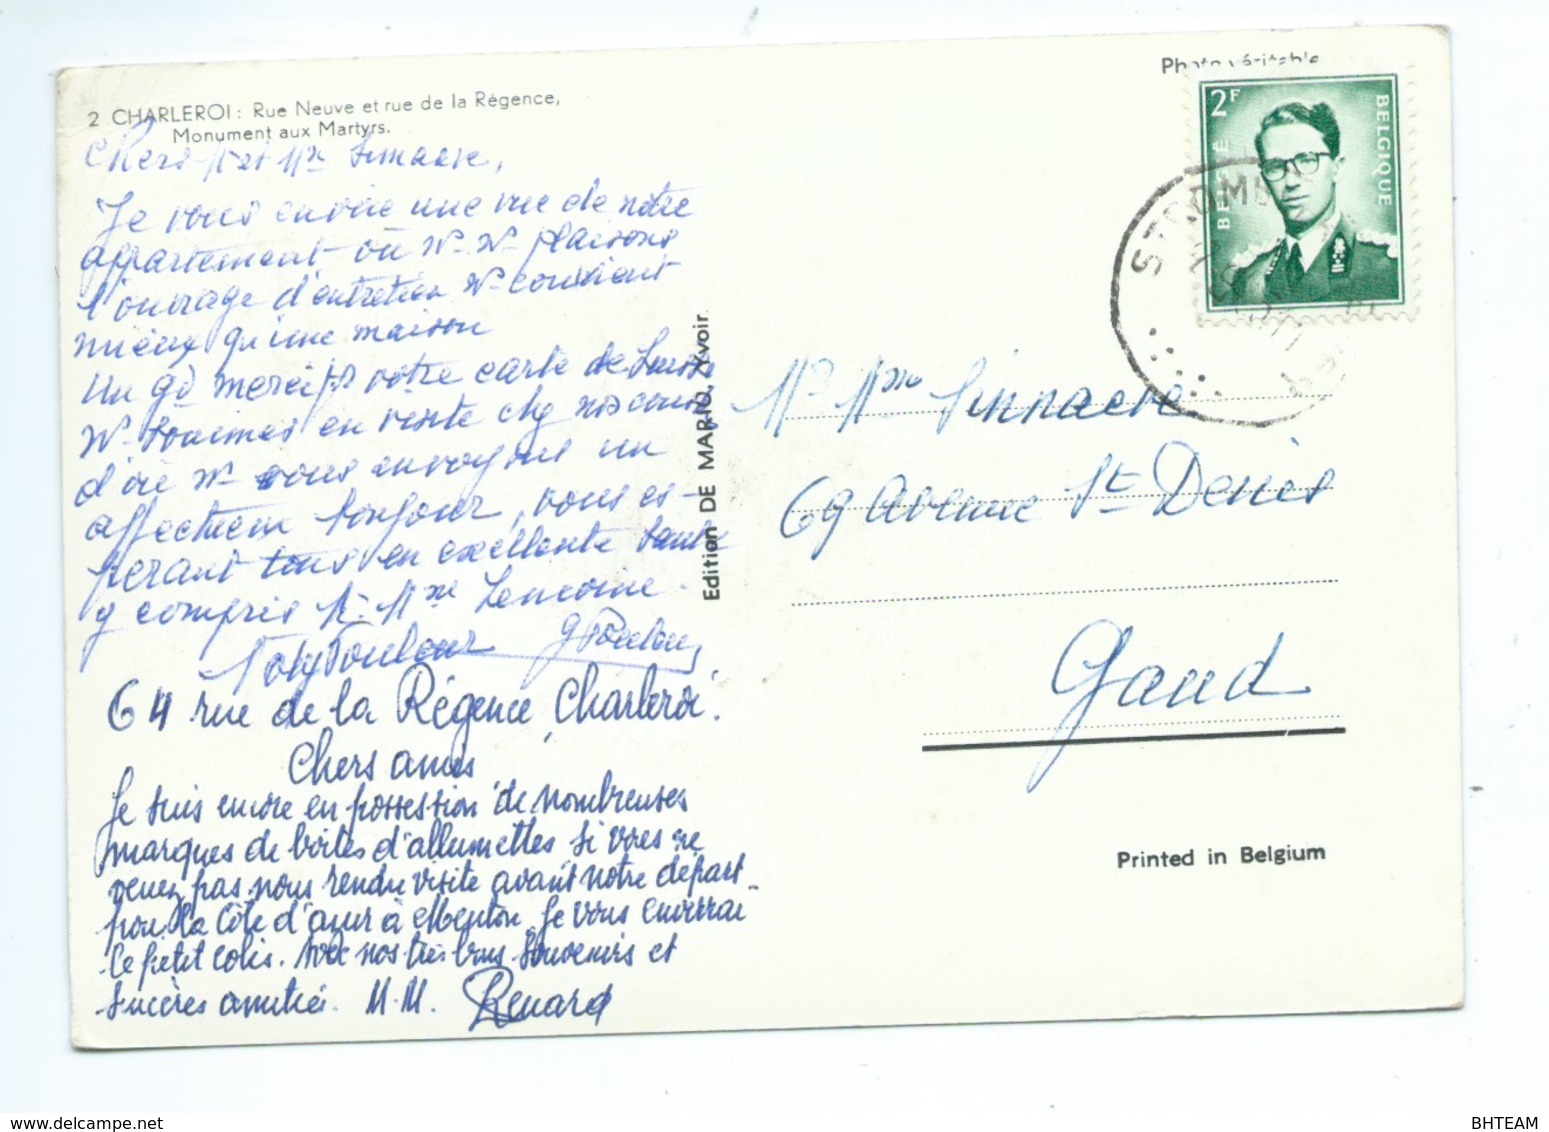 2 CHARLEROI : Rue Neuve et rue de la Régence,
Monument aux Martyrs.
Photo véritable
2F
BELGIE
BELGIQUE
Chers Mr et Mme
Je vous envoie une vue de notre
appartement où Ns Ns plaisons
l'ouvrage d'entretien Ns convient
mieux qu'une maison
Un gd merci pr votre carte de
Ns sommes en visite chez nos
d'où Ns vous envoyons un
affectueux bonjour, vous es-
perant tous en excellente santé
y compris Mr Mme Lemoine
64 rue de la Régence, Charleroi.
Chers amis
Je suis encore en possession de nombreuses
marques de boîtes d'allumettes si vous ne
venez pas nous rendre visite avant notre départ
pour la Côte d'azur à Menton je vous enverrai
le petit colis. Avec nos très bons souvenirs et
sincères amitiés. M. M. Renard
Edition DE MARIO, Yvoir.
Mr Mme Sinnaeve
69 Avenue St Denis
Gand
Printed in Belgium
delcampe.net
BHTEAM